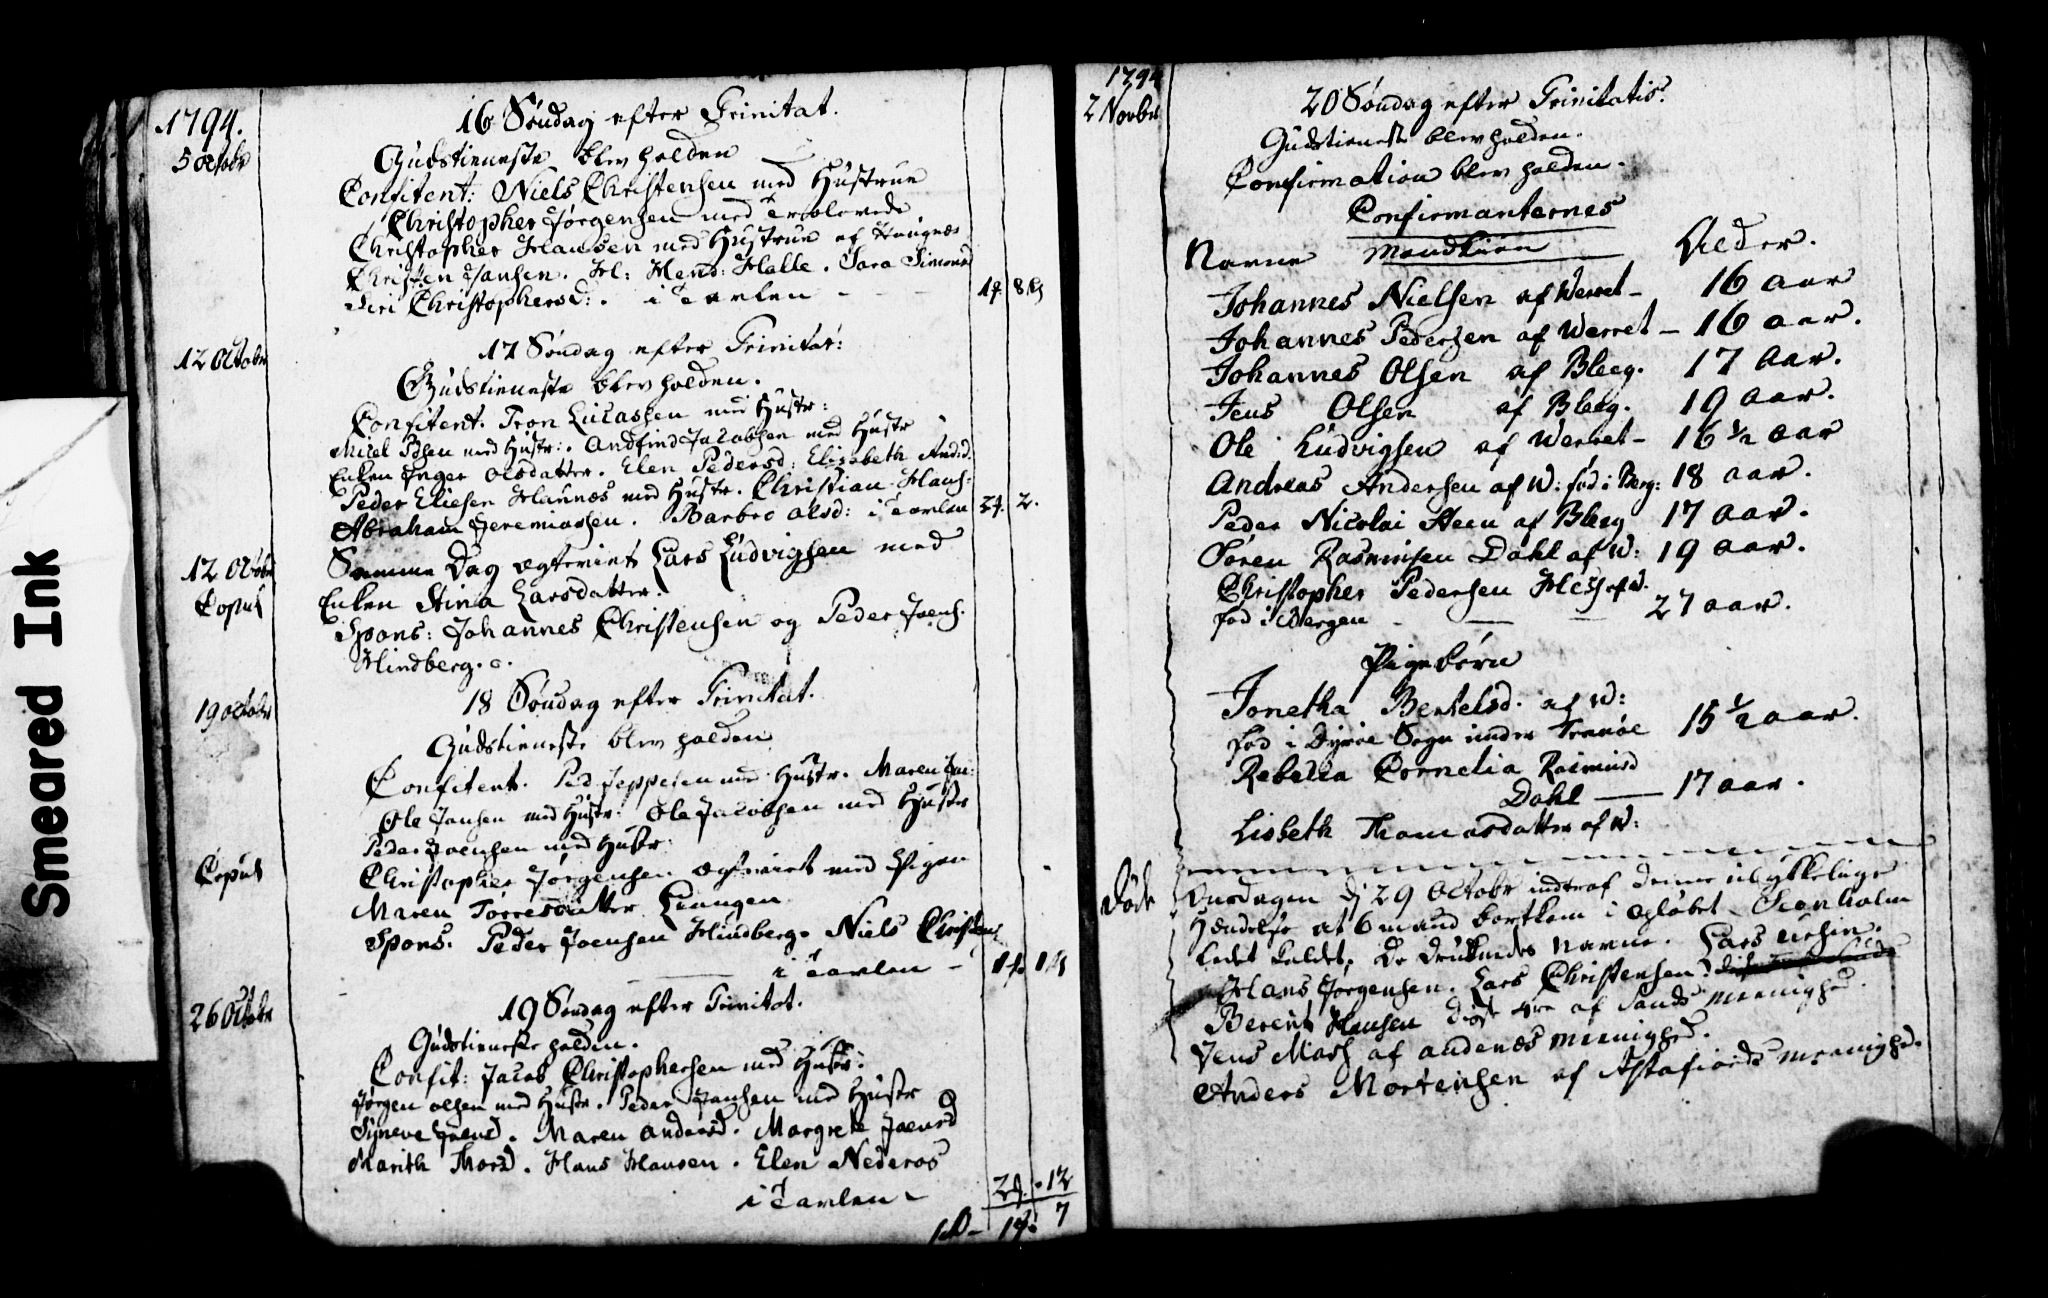 Smeared Ink
1794.
5 Octobr
16 Søndag efter Trinitat.
Gudstieneste blev holden
Confitent: Niels Christensen med Hustrue
Christopher Jørgensen med Trolovede
Christopher Hansen med Hustrue af Haugnæs
Christen Jansen. H: Hend: Halle. Sara Simonsd
Siri Christophersd: . i Tavlen - - - 1 8
12 Octobr
17 Søndag efter Trinitat:
Gudstieneste blev holden.
Confitent. Tron Lucassen med Hustr:
Micel Ibsen med Hustr:. Andfind Jacobsen med Hustr
Enken Inger Olsdatter. Elen Pedersd: Elisabeth And:d.
Peder Eliesen Haunæs med Hustr. Christian Hans:
Abraham Jeremiassen. Barbro Olsd: i Tavlen 2 2.
12 Octobr
Copul
Samme Dag ægteviet Lars Ludvigsen med
Enken Stina Larsdatter.
Spons: Johannes Christensen og Peder Joens.
Hindberg.
19 Octobr
18 Søndag efter Trinitat.
Gudstieneste blev holden
Confitent. Ped Jeppesen med Hustr. Maren
Ole Jansen med Hustr. Ole Jacobsen med Hustr
Peder Joensen med Hustr
Copul
Christopher Jørgensen ægteviet med Pigen
Maren Torresdatter
Spons. Peder Joensen Hindberg. Niels Christens
i Tavlen -
26 Octobr
19 Søndag efter Trinitat.
Gudstieneste holden.
Confit: Jacob Christophersen med Hustr:
Jørgen Olsen med Hustr. Peder Jansen med Hustr
Synneve Joensd. Maren Andersd. Margrete Joensd
Marith Thord. Hans Hansen. Elen Nederos
i Tavlen - 2 12
1 7
1794
2 Novbr
20 Søndag efter Trinitatis.
Gudstieneste blev holden.
Confirmation blev holden.
Confirmanternes
Navne Mandkiøn Alder.
Johannes Nielsen af Werret - 16 aar
Johannes Pedersen af Werret - 16 aar.
Johannes Olsen af Bleeg. 17 Aar.
Jens Olsen af Bleeg. 19 aar.
Ole Ludvigsen af Werret - 16 ½ aar
Andreas Andersen af W: fød i Berg: 18 aar.
Peder Nicolai Steen af Bleeg 17 aar.
Søren Rasmusen Dahl af W: 19 aar.
Christopher Pedersen Hess af W.
fød i Bergen - - - 27 aar.
Pigebørn
Jonetha Bertelsd. af W:
fød i Dyrøe Sogn under Tranøe 15 ½ aar.
Rebecca Cornelia Rasmusd
Dahl — 17 aar.
Lisbeth Thomasdatter af W:
Døde
Onsdagen d 29 Octobr indtraf denne ulykkelige
Hændelse at 6 mand bortkom i
kaldet. De Druknedes Navne. Lars
Hans Jørgensen. Lars Christensen.
Berent Hansen disse ere af Sands Meenighed.
Jens Mass af Andenæs Meenighed.
Anders Mortensen af Astafiords Meenighed.